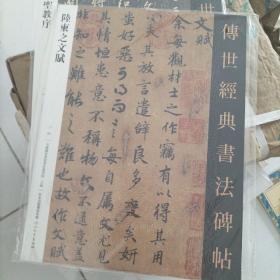 傳世經典書法碑帖
陸柬之文賦
聖教序
文賦
余每觀材士之作竊有以得其用
心夫其放言遣辭良多變矣妍
蚩好惡可得而言每自屬文尤見
其情恒患意不稱物文不逮意蓋
非知之難能之難也故作文賦